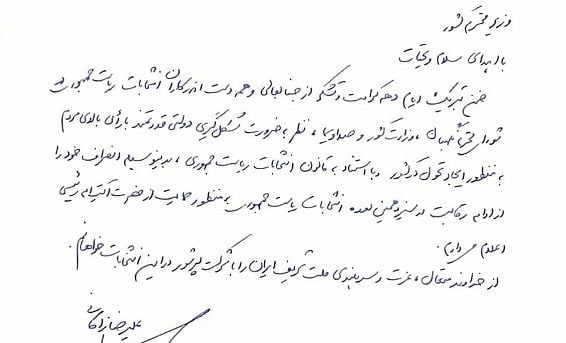 وزیر محترم کشور
با اهدای سلام و تحیات
ضمن تبریک ایام دهه کرامت و تشکر از جنابعالی و همه دست اندرکاران انتخابات ریاست جمهوری در
شورای محترم نگهبان، وزارت کشور و صدا و سیما، نظر به ضرورت شکل گیری دولتی قدرتمند با رأی بالای مردم
به منظور ایجاد تحول در کشور و با استناد به قانون انتخابات ریاست جمهوری، بدینوسیله انصراف خود را
از ادامه رقابت در سیزدهمین دوره انتخابات ریاست جمهوری به منظور حمایت از حضرت آیت اله رئیسی
اعلام می دارم.
از خداوند متعال، عزت و سربلندی ملت شریف ایران را با شرکت پرشور در این انتخابات خواهانم.
علیرضا زاکانی